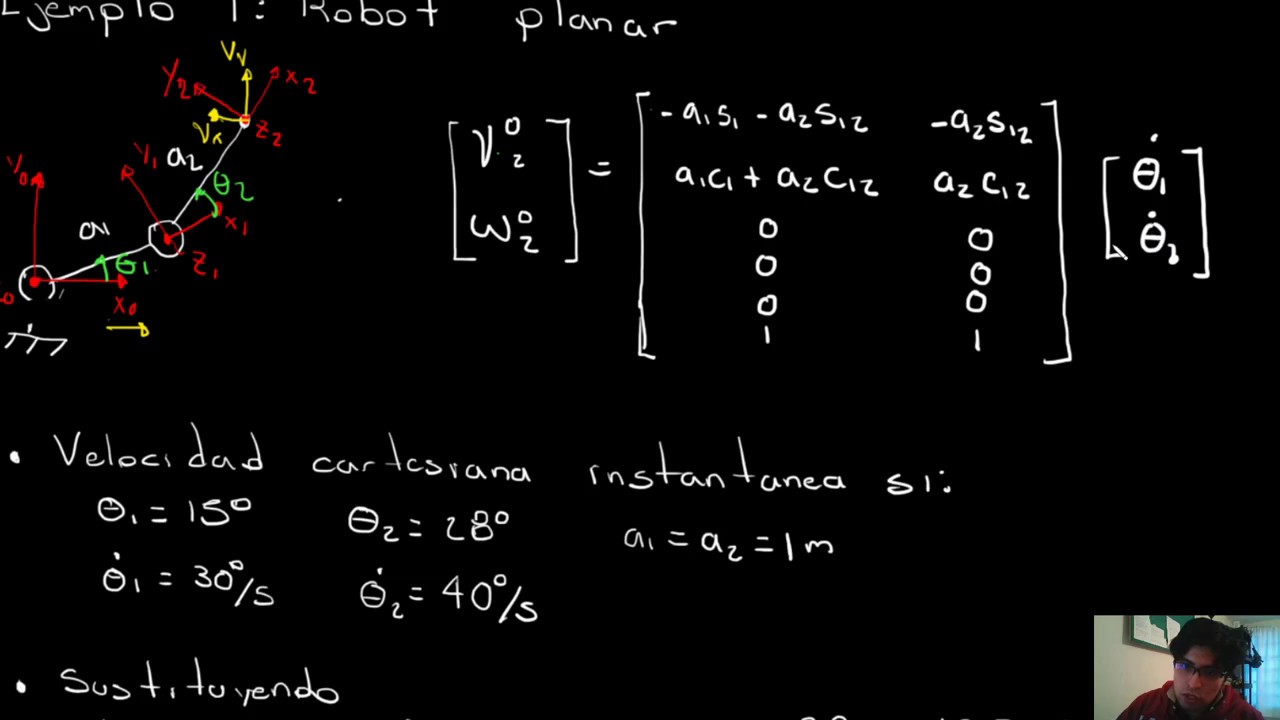 Ejemplo 1: Robot planar
Vy
Y2 x2
Vx Z2
Y0 Y1 a2 θ2
a1 x1
θ1 Z1
0 x0
[ V₂⁰ ; ω₂⁰ ] = [ -a₁s₁ - a₂s₁₂ -a₂s₁₂
a₁c₁ + a₂c₁₂ a₂c₁₂
0 0
0 0
0 0
1 1 ] [ θ̇₁ ; θ̇₂ ]
• Velocidad cartesiana instantanea si:
θ₁ = 15° θ₂ = 28° a₁ = a₂ = 1 m
θ̇₁ = 30°/s θ̇₂ = 40°/s
• Sustituyendo